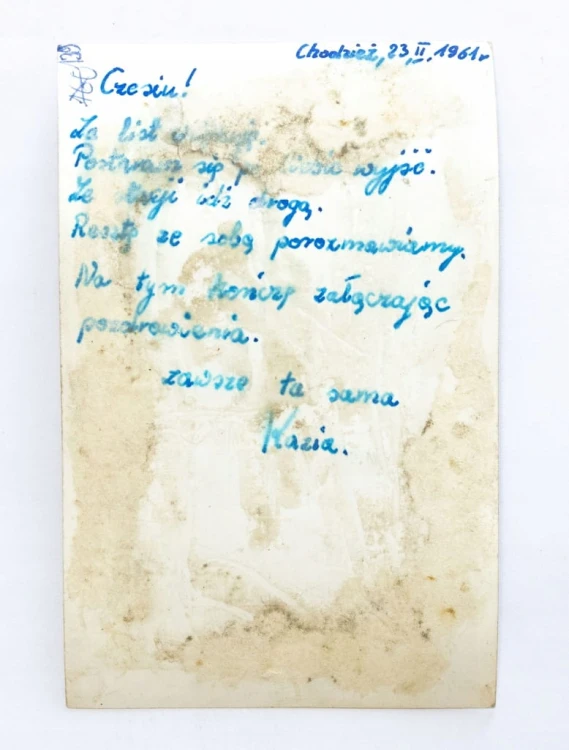 Chodzież, 23.II.1961r
Czesiu!
Za list
się wyjść.
Ze idź drogą.
Resztę ze sobą porozmawiamy.
Na tym kończę załączając
pozdrowienia.
zawsze ta sama
Kazia.